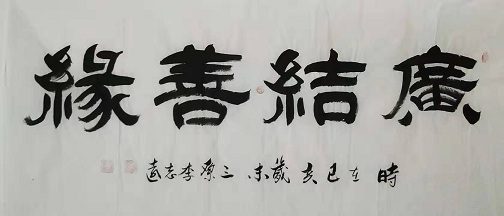 廣結善緣
時在己亥歲末三原李志遠